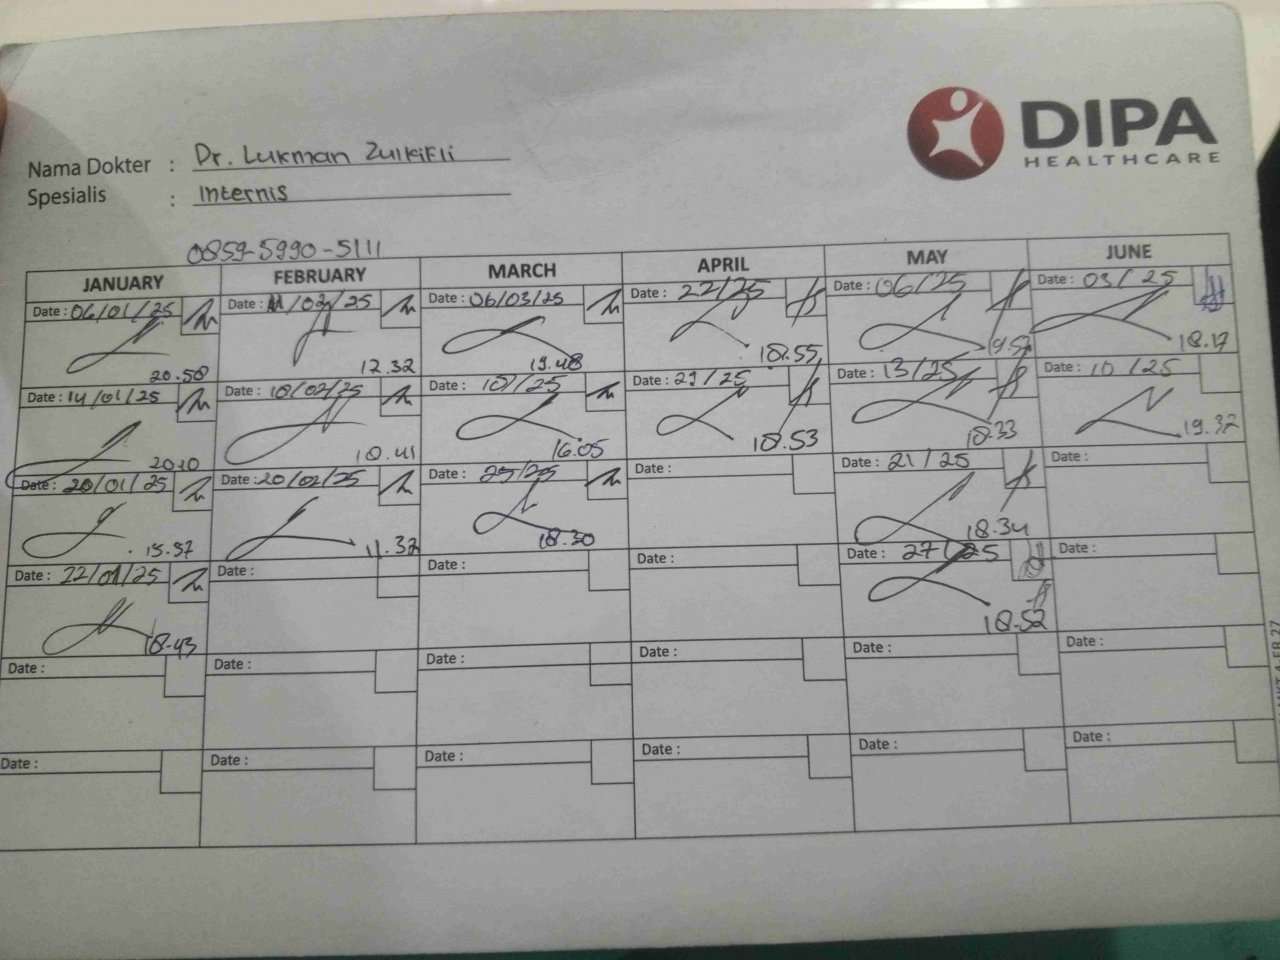 DIPA
HEALTHCARE
Nama Dokter : Dr. Lukman Zulkifli
Spesialis : Internis
0859-5990-5111
JANUARY FEBRUARY MARCH APRIL MAY JUNE
Date : 06/01/25 Date : 11/02/25 Date : 06/03/25 Date : 22/25 Date : 06/25 Date : 03/25
20.58 12.32 19.48 18.55 18.17
Date : 14/01/25 Date : 18/02/25 Date : 18/25 Date : 29/25 Date : 13/25 Date : 10/25
20.10 18.41 16.05 18.53 18.33 19.32
Date : 20/01/25 Date : 20/02/25 Date : 25/25 Date : Date : 21/25 Date :
15.37 11.32 18.30 18.34
Date : 22/01/25 Date : Date : Date : Date : 27/25 Date :
18.43 18.52
Date : Date : Date : Date : Date : Date :
Date : Date : Date : Date : Date : Date :